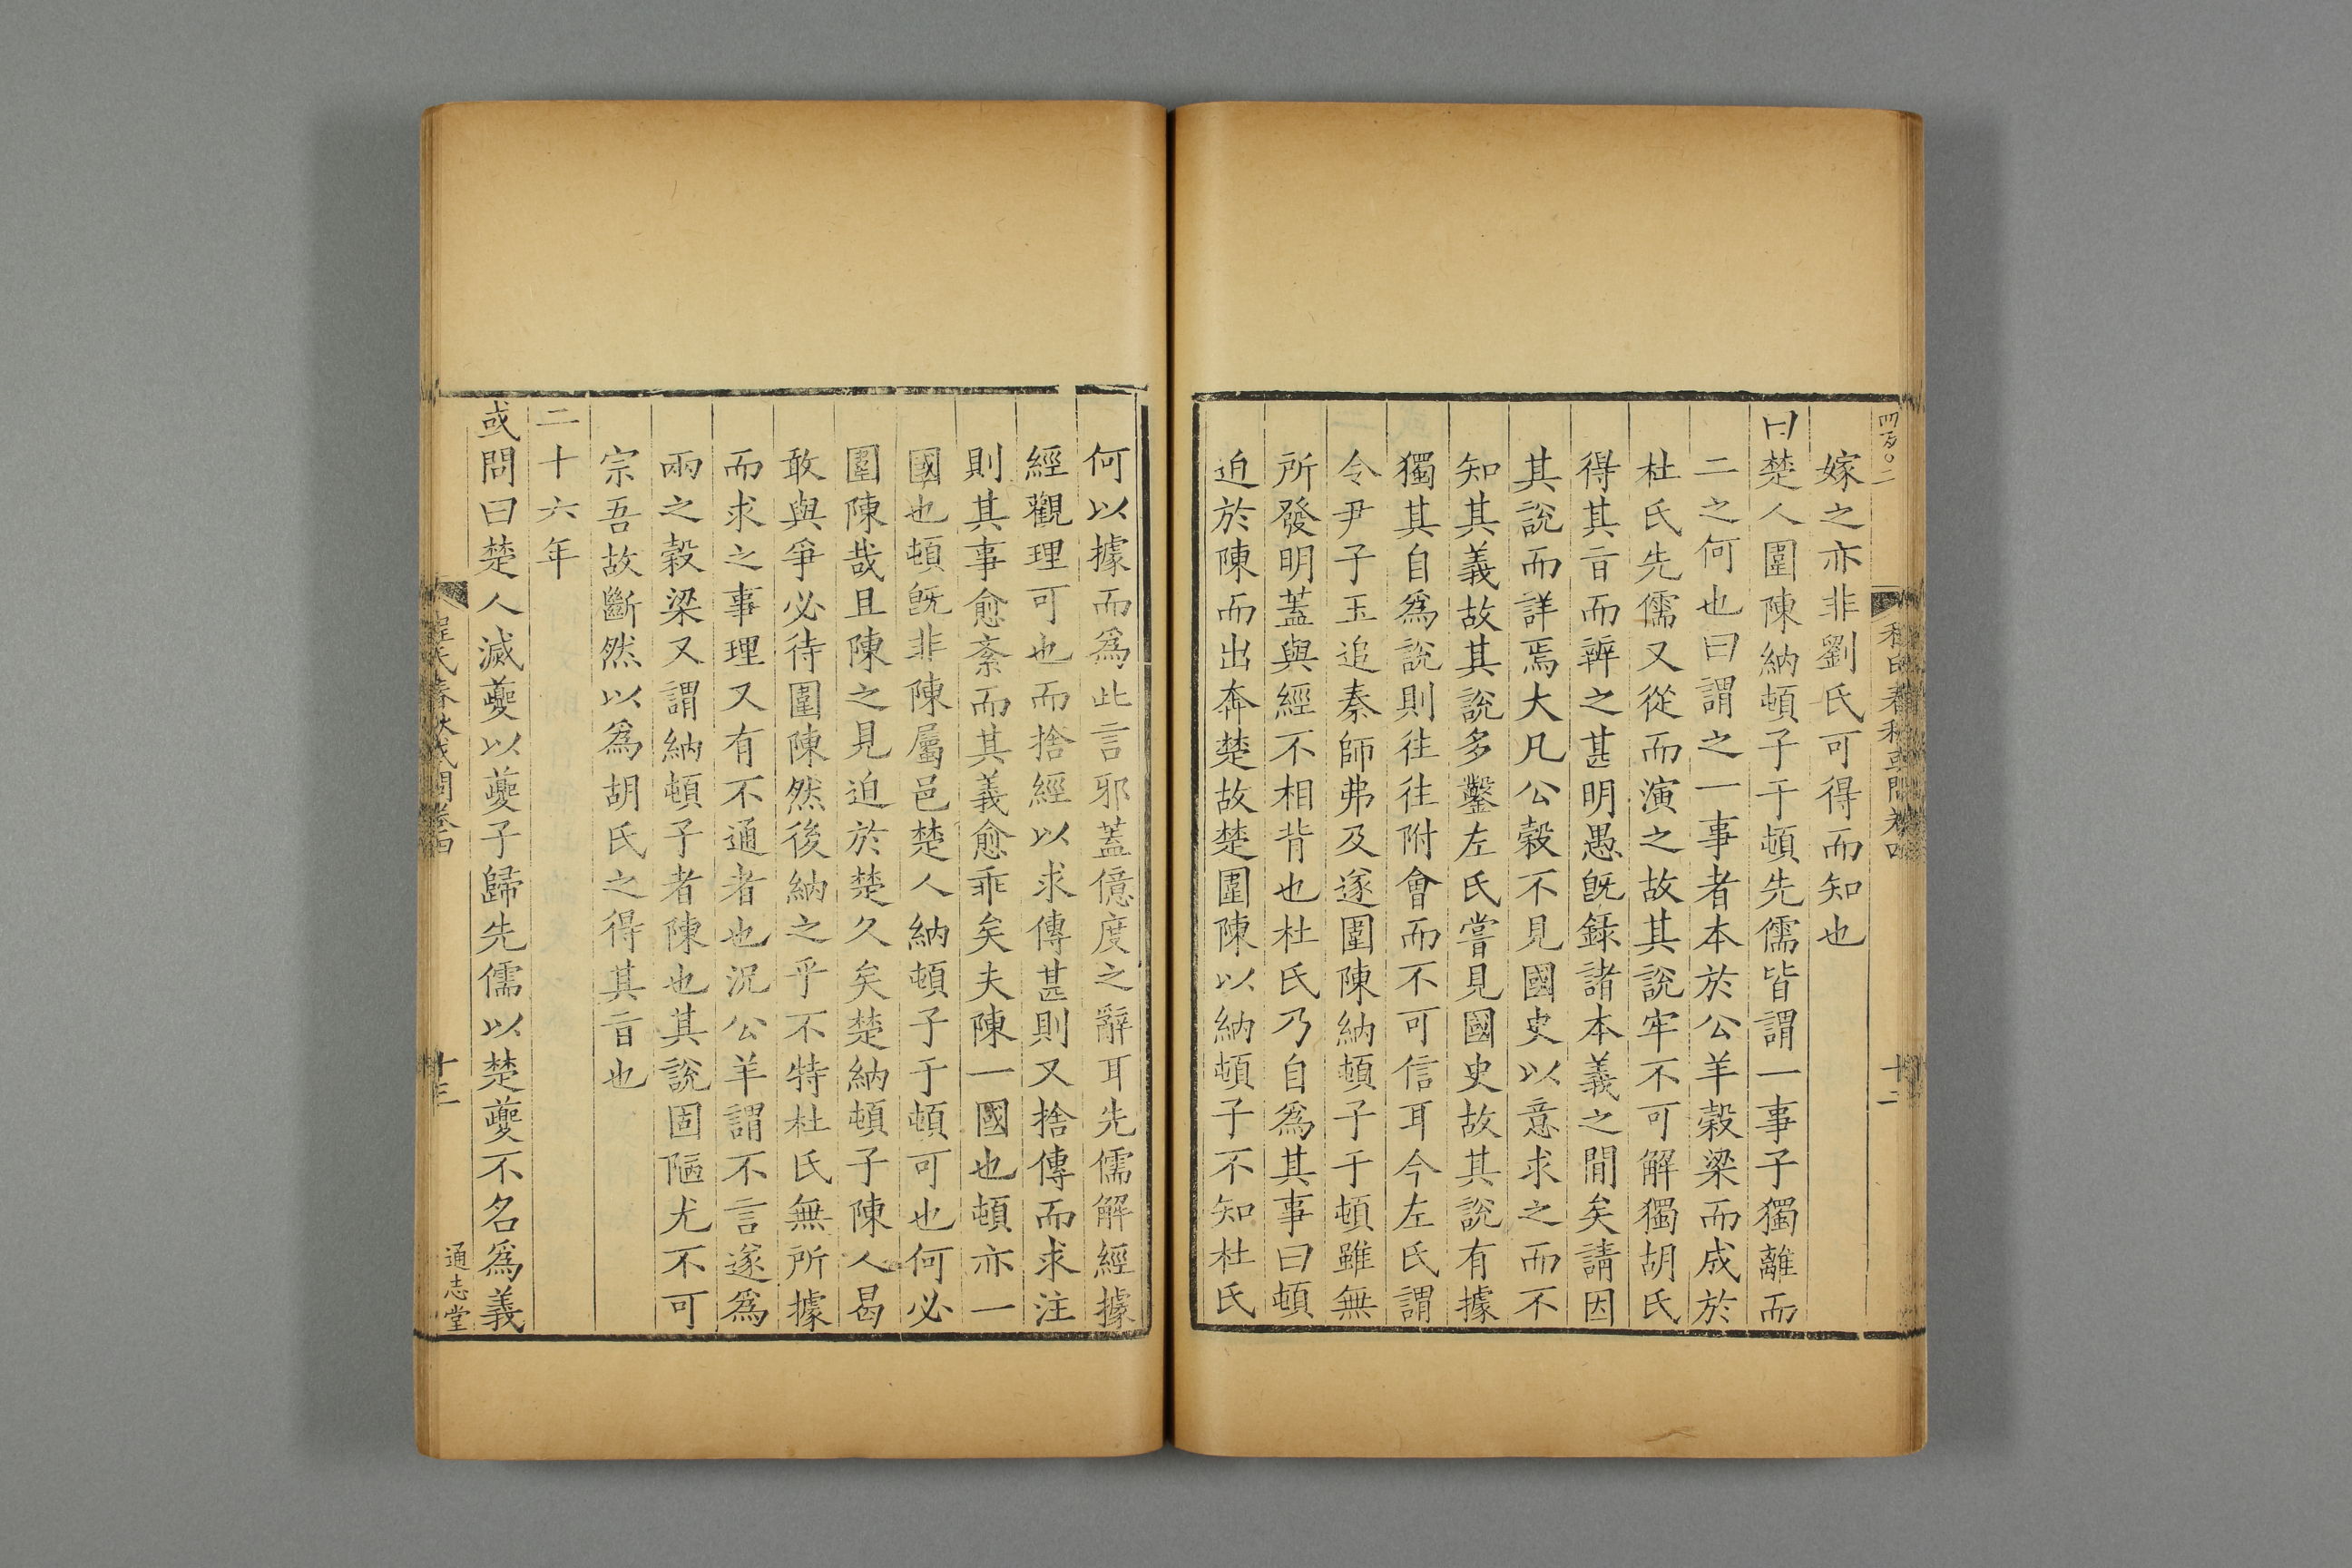 嫁之亦非劉氏可得而知也
曰楚人圍陳納頓子于頓先儒皆謂一事子獨離而
二之何也曰謂之一事者本於公羊榖梁而成於
杜氏先儒又從而演之故其說牢不可解獨胡氏
得其㫖而辨之甚明愚旣錄諸本義之間矣請因
其說而詳焉大凡公榖不見國史以意求之而不
知其義故其說多鑿左氏嘗見國史故其說有據
獨其自爲說則往往附會而不可信耳今左氏謂
令尹子玉追秦師弗及遂圍陳納頓子于頓雖無
所發明蓋與經不相背也杜氏乃自爲其事曰頓
迫於陳而出奔楚故楚圍陳以納頓子不知杜氏
何以據而爲此言邪蓋億度之辭耳先儒解經據
經觀理可也而捨經以求傳甚則又捨傳而求注
則其事愈紊而其義愈乖矣夫陳一國也頓亦一
國也頓旣非陳屬邑楚人納頓子于頓可也何必
圍陳哉且陳之見迫於楚久矣楚納頓子陳人曷
敢與爭必待圍陳然後納之乎不特杜氏無所據
而求之事理又有不通者也況公羊謂不言遂爲
兩之榖梁又謂納頓子者陳也其說固陋尤不可
宗吾故斷然以爲胡氏之得其㫖也
二十六年
或問曰楚人滅夔以夔子歸先儒以楚夔不名爲義
程氏春秋或問卷四
十三
通志堂